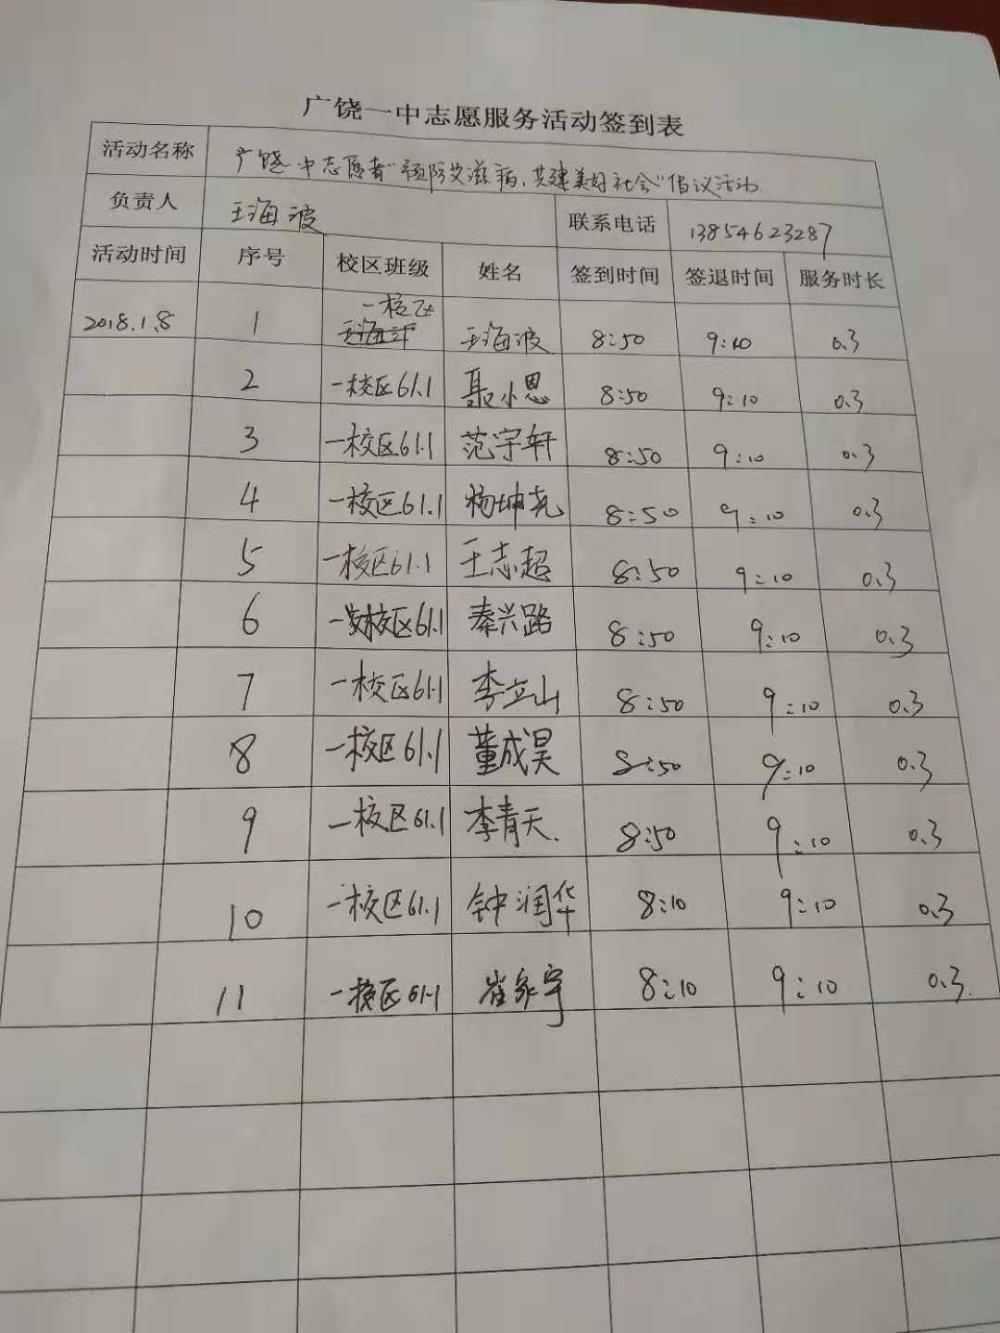 广饶一中志愿服务活动签到表
活动名称 广饶一中志愿者“预防艾滋病,共建美好社会”倡议活动
负责人 王海波 联系电话 13854623287
活动时间 序号 校区班级 姓名 签到时间 签退时间 服务时长
2018.1.8 1 一校区 王海波 8:50 9:10 0.3
2 一校区61.1 聂小恩 8:50 9:10 0.3
3 一校区61.1 范宇轩 8:50 9:10 0.3
4 一校区61.1 杨坤尧 8:50 9:10 0.3
5 一校区61.1 王志超 8:50 9:10 0.3
6 一校区61.1 秦兴路 8:50 9:10 0.3
7 一校区61.1 李立山 8:50 9:10 0.3
8 一校区61.1 董成昊 8:50 9:10 0.3
9 一校区61.1 李青天. 8:50 9:10 0.3
10 一校区61.1 钟润华 8:10 9:10 0.3
11 一校区61.1 崔家宇 8:10 9:10 0.3.